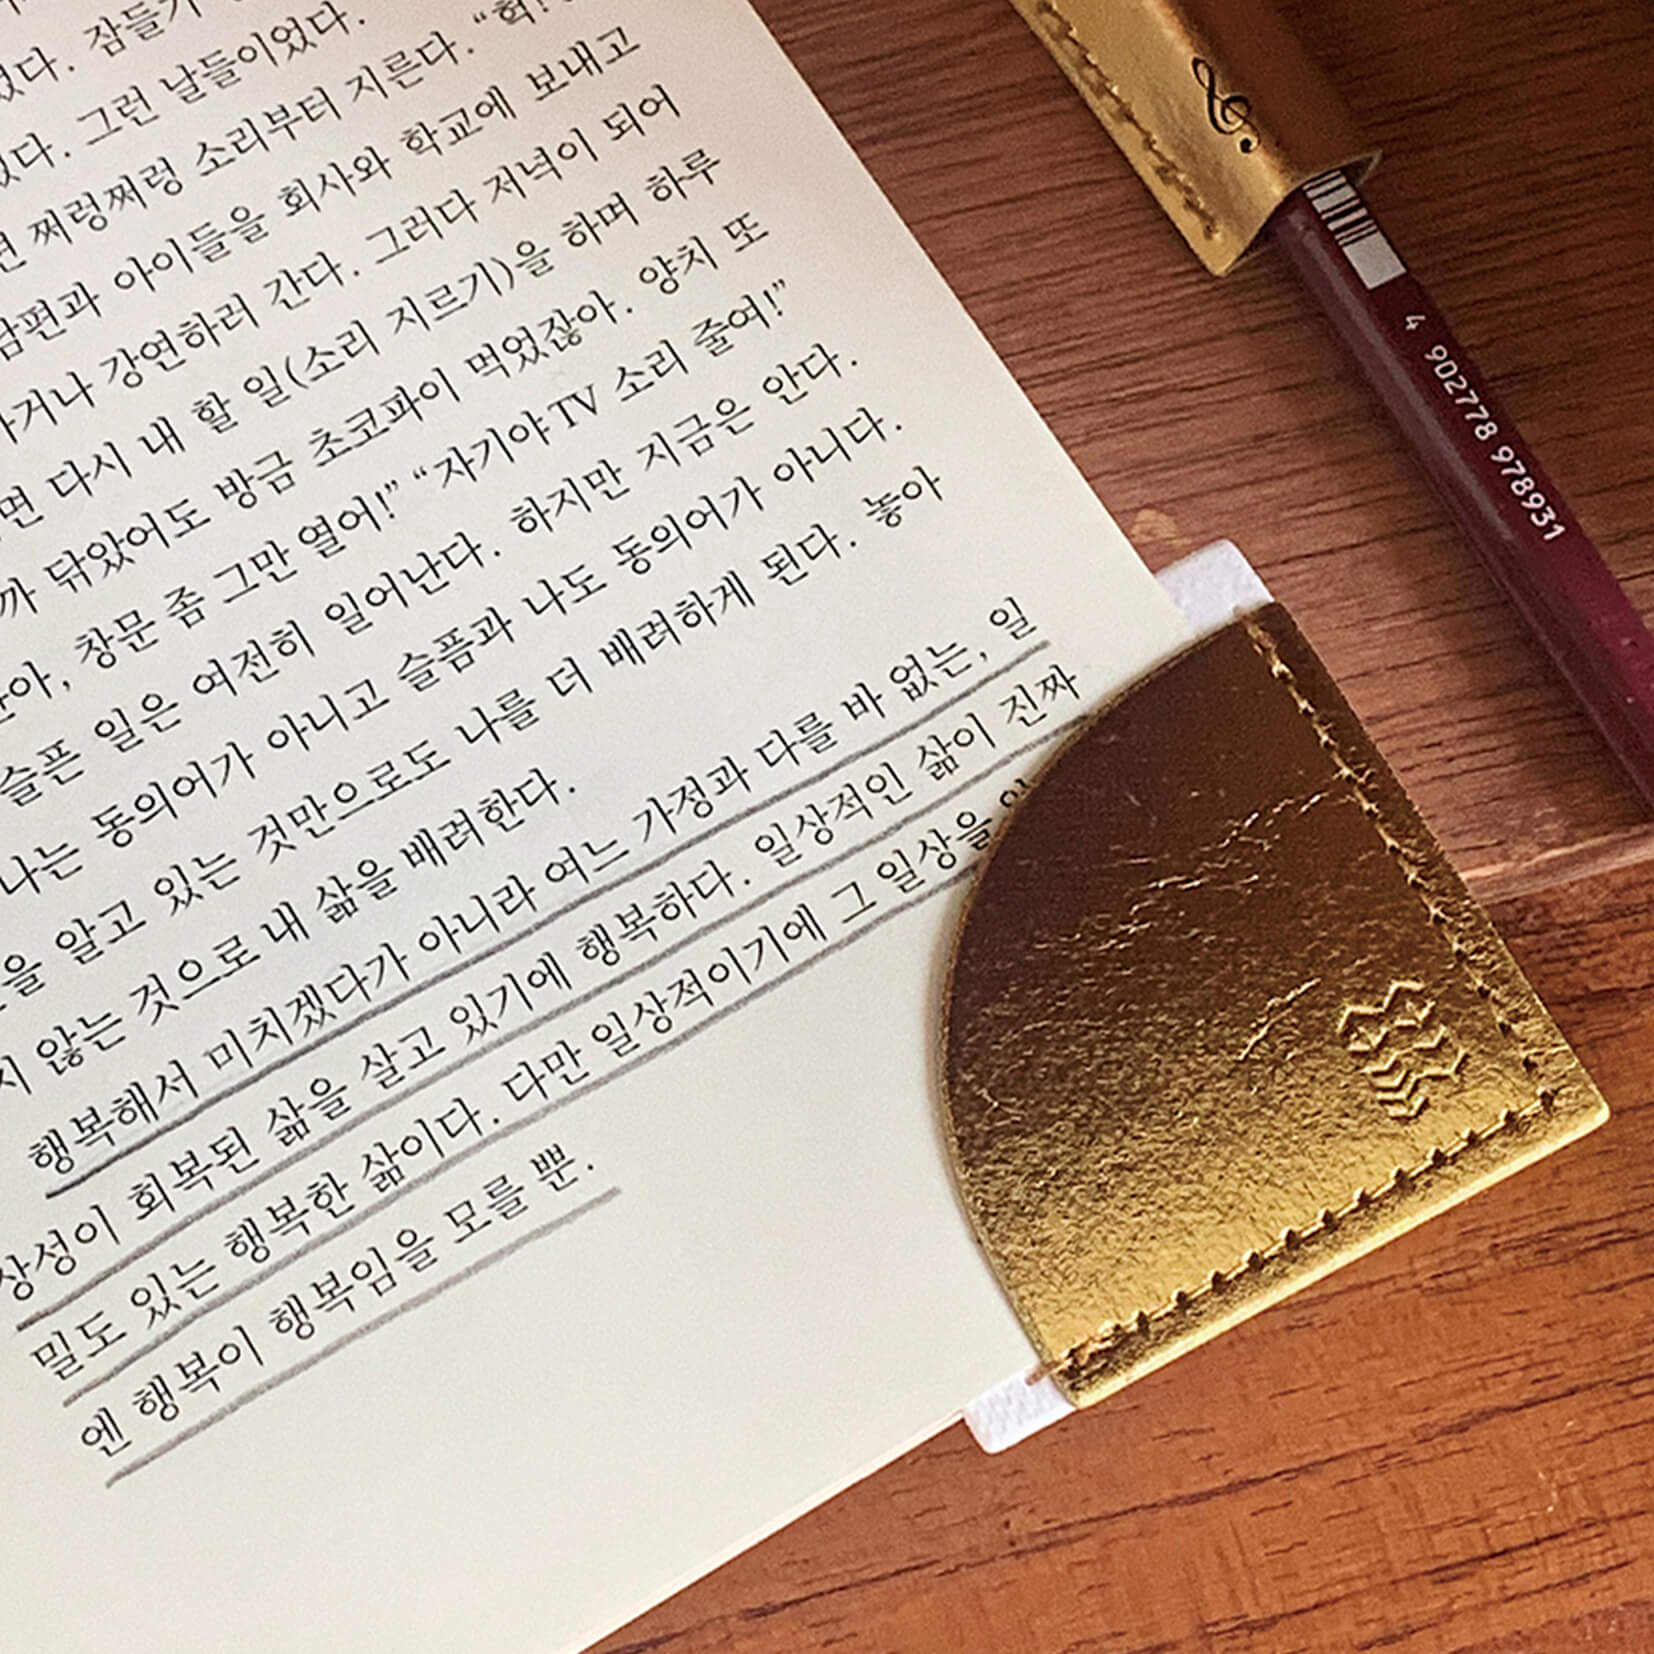 었다. 잠들기
었다. 그런 날들이었다.
면 쩌렁쩌렁 소리부터 지른다. “헉!
남편과 아이들을 회사와 학교에 보내고
가거나 강연하러 간다. 그러다 저녁이 되어
면 다시 내 할 일(소리 지르기)을 하며 하루
까 닦았어도 방금 초코파이 먹었잖아. 양치 또
아, 창문 좀 그만 열어!” “자기야 TV 소리 줄여!”
슬픈 일은 여전히 일어난다. 하지만 지금은 안다.
나는 동의어가 아니고 슬픔과 나도 동의어가 아니다.
을 알고 있는 것만으로도 나를 더 배려하게 된다. 놓아
지 않는 것으로 내 삶을 배려한다.
행복해서 미치겠다가 아니라 여느 가정과 다를 바 없는, 일
상성이 회복된 삶을 살고 있기에 행복하다. 일상적인 삶이 진짜
밀도 있는 행복한 삶이다. 다만 일상적이기에 그 일상을
엔 행복이 행복임을 모를 뿐.
4 902778 978931